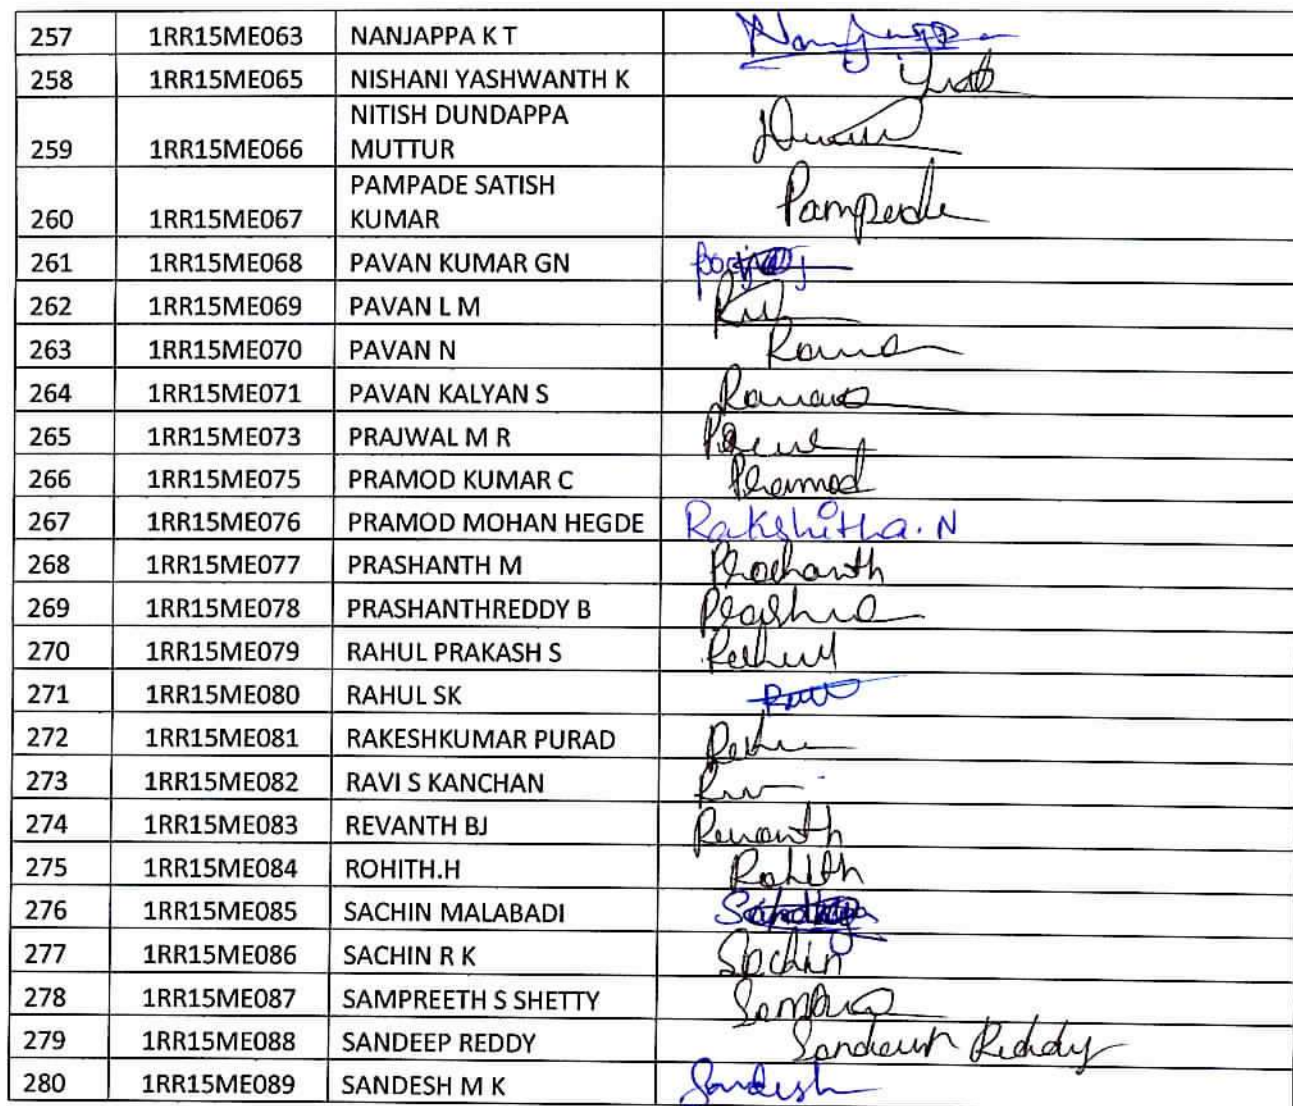 257 1RR15ME063 NANJAPPA K T
258 1RR15ME065 NISHANI YASHWANTH K
NITISH DUNDAPPA
259 1RR15ME066 MUTTUR
PAMPADE SATISH
260 1RR15ME067 KUMAR Pampade
261 1RR15ME068 PAVAN KUMAR GN
262 1RR15ME069 PAVAN L M
263 1RR15ME070 PAVAN N
264 1RR15ME071 PAVAN KALYAN S
265 1RR15ME073 PRAJWAL M R
266 1RR15ME075 PRAMOD KUMAR C Pramod
267 1RR15ME076 PRAMOD MOHAN HEGDE Rakshitha. N
268 1RR15ME077 PRASHANTH M Prashanth
269 1RR15ME078 PRASHANTHREDDY B
270 1RR15ME079 RAHUL PRAKASH S Rahul
271 1RR15ME080 RAHUL SK
272 1RR15ME081 RAKESHKUMAR PURAD
273 1RR15ME082 RAVI S KANCHAN
274 1RR15ME083 REVANTH BJ Revanth
275 1RR15ME084 ROHITH.H Rohith
276 1RR15ME085 SACHIN MALABADI
277 1RR15ME086 SACHIN R K Sachin
278 1RR15ME087 SAMPREETH S SHETTY
279 1RR15ME088 SANDEEP REDDY Reddy
280 1RR15ME089 SANDESH M K Sandesh